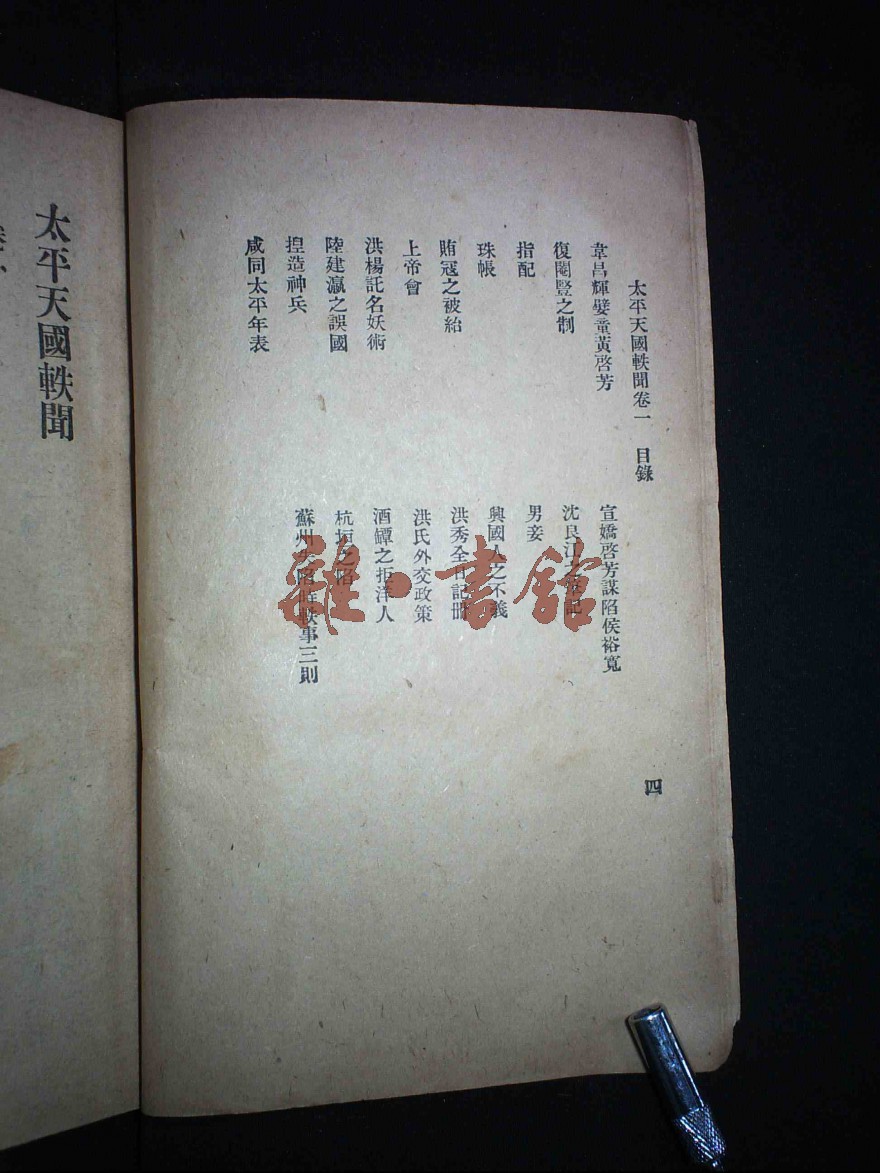 太平天國軼聞卷一 目錄
四
韋昌輝嬖童黃啓芳
宣嬌啓芳謀陷侯裕寬
復閹豎之制
沈良江
記
指配
男妾
珠帳
興國人之不義
賄冠之被紿
洪秀全日記冊
上帝會
洪氏外交政策
洪楊託名妖術
酒罈之拒洋人
陸建瀛之誤國
杭垣之陷
捏造神兵
蘇州失陷時軼事三則
咸同太平年表
太平天國軼聞
雜·書館